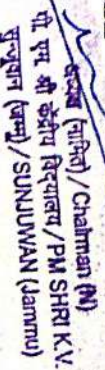 अध्यक्ष (नामित) / Chairman (N)
पी एम श्री केंद्रीय विद्यालय / PM SHRI K.V.
सुन्जुवान (जम्मू) / SUNJUWAN (Jammu)